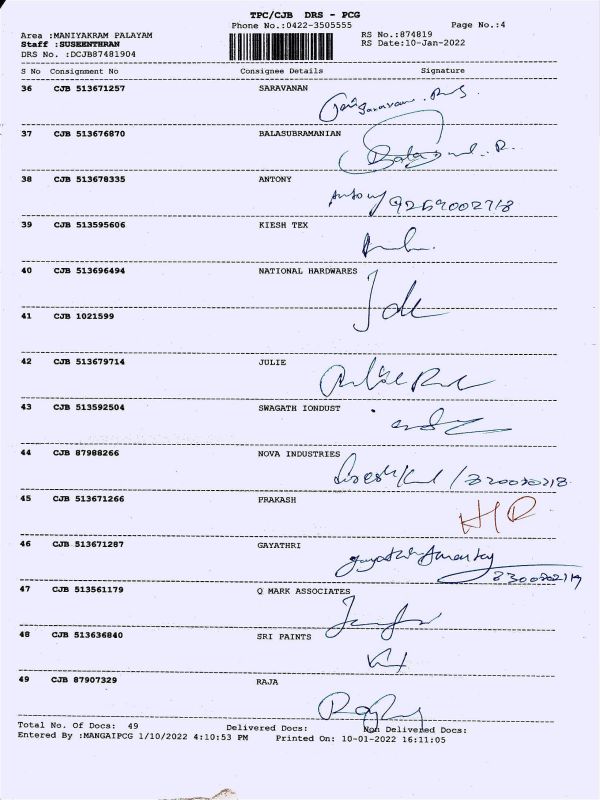 TPC/CJB DRS - PCG
Phone No.:0422-3505555 Page No.:4
Area :MANIYAKRAM PALAYAM RS No.:874819
Staff :SUSEENTHRAN RS Date:10-Jan-2022
DRS No. :DCJB87481904
S No Consignment No Consignee Details Signature
36 CJB 513671257 SARAVANAN
37 CJB 513676870 BALASUBRAMANIAN
38 CJB 513678335 ANTONY
Antony
39 CJB 513595606 KIESH TEX
40 CJB 513696494 NATIONAL HARDWARES
41 CJB 1021599
42 CJB 513679714 JULIE
43 CJB 513592504 SWAGATH IONDUST
44 CJB 87988266 NOVA INDUSTRIES
45 CJB 513671266 PRAKASH
46 CJB 513671287 GAYATHRI
47 CJB 513561179 Q MARK ASSOCIATES
48 CJB 513636840 SRI PAINTS
49 CJB 87907329 RAJA
Total No. Of Docs: 49 Delivered Docs: Non Delivered Docs:
Entered By :MANGAIPCG 1/10/2022 4:10:53 PM Printed On: 10-01-2022 16:11:05